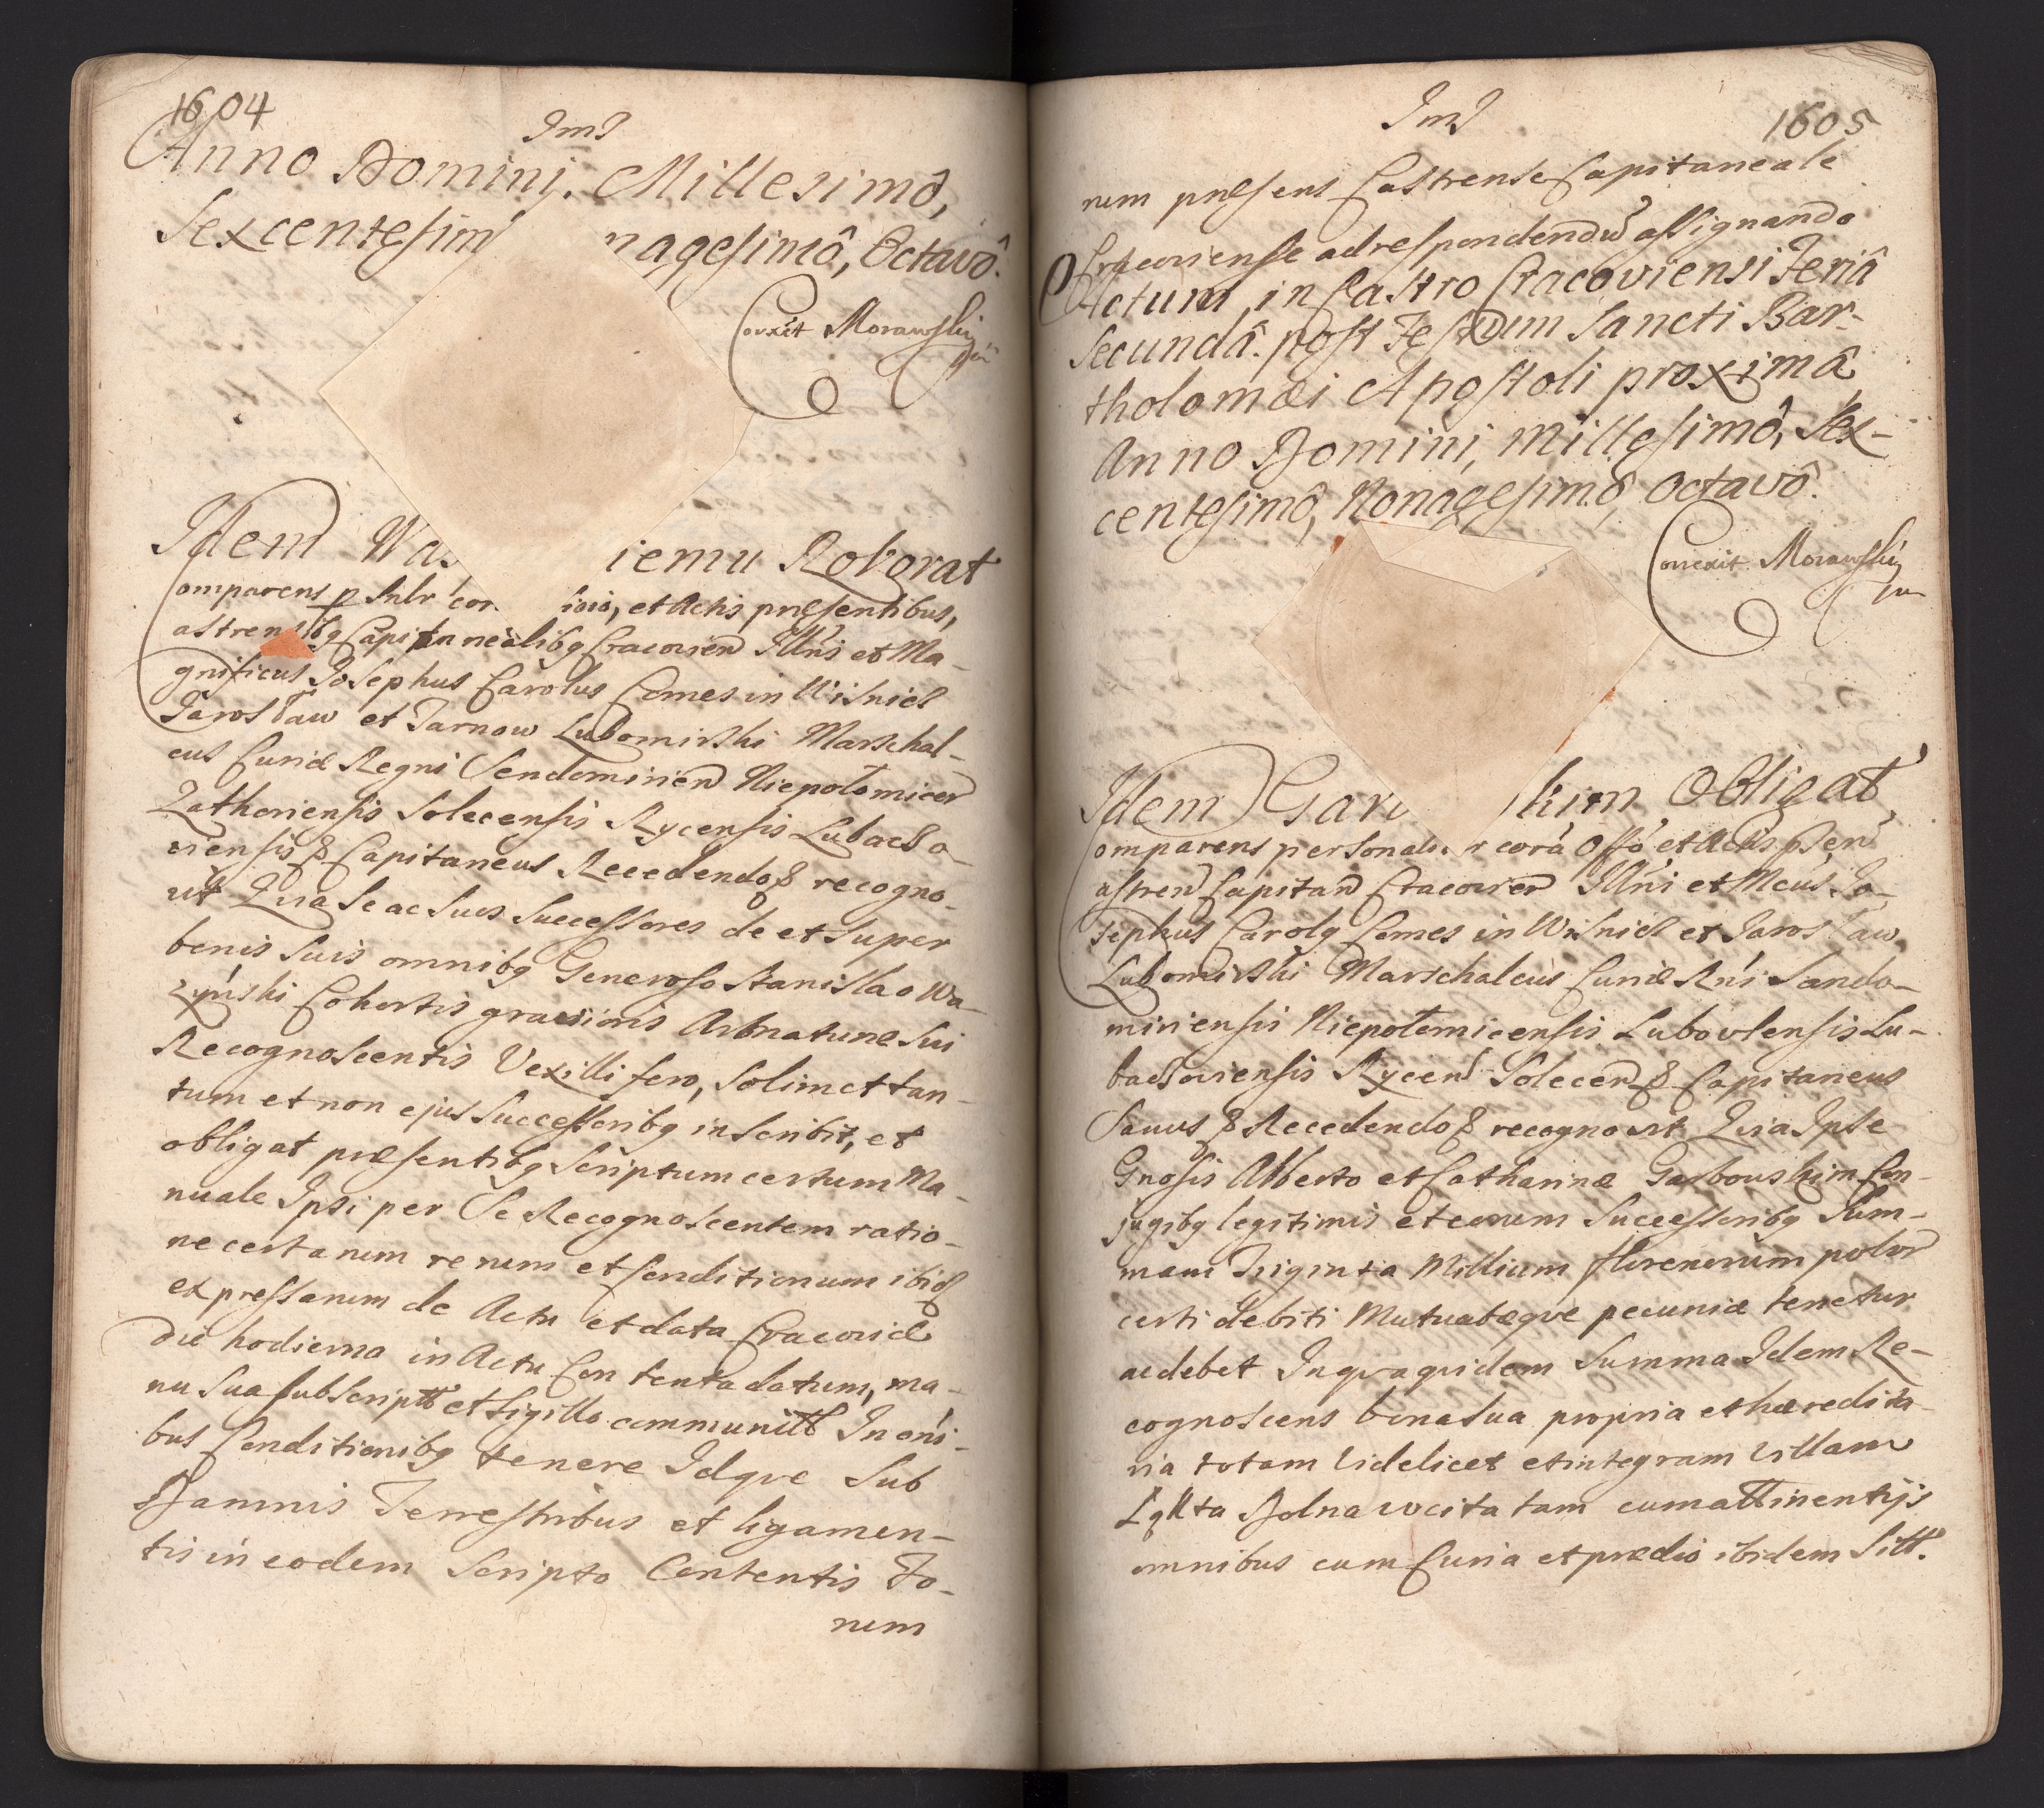 1604
JmJ
Anno Domini, Millesimô,
Sexcentesim nagesimô, Octavô.
Corexit Morawski
mp
Idem Wa iemu Roborat
Comparens p Snlr cor. icio, et Actis præsentibus,
Castrensibq Capitanealibq Cracovien Illris et Ma-
gnificus Josephus Carolus Comes in Wisnicz
Jarosław et Tarnow Lubomirski Marschal-
cus Curiæ Regni Sendomirien Niepołomicen
Zathoriensis Solecensis Rycensis Lubaczo-
viensis & Capitaneus Recedendo & recogno-
vit Quia Se ac Suos Successores de et super
bonis suis omnibq Generoso Stanislao Wa-
zyński Cohortis gravioris Armaturæ Sui
Recognoscentis Vexillifero, solimet tan-
tum et non ejus Successoribq inscribit, et
obligat præsentibq Scriptum certum Ma-
nuale Ipsi per Se Recognoscentem ratio-
ne certarum rerum et Conditionum ibid
expressarum de Actu et data Cracoviæ
die hodierna in Actu Contenta datum, ma-
nu sua subscriptt et sigillo communitt In oni-
bus Conditionibq tenere Idqve Sub
Damnis Terrestribus et ligamen-
tis in eodem Scripto Contentis Fo-
rum
JmJ
1605
rum præsens Castrense Capitaneale
Cracoviense ad respondendū assignando
Actum, in Castro Cracoviensi Feriâ
Secundâ. post Festum Sancti Bar-
tholomæi Apostoli proximâ
Anno Domini, Millesimô, Sex-
centesimô, Nonagesimô, Octavô.
Correxit Morawski
mp
Idem Garv kim Obligat
Comparens personalr r corā Offo et Actis psen
Castren Capitan Cracovien Illris et Mcus Jo-
sephus Carolq Comes in Wisnicz et Jarosław
Lubomirski Marschalcus Curiæ Rni Sando-
miriensis Niepołomicensis Lubovlensis Lu-
baczoviensis Rycen Solecen & Capitaneus
Sanus & Recedendo & recognovit Quia Ipse
Gnosis Alberto et Catharinæ Garbowskim Con-
jugibq legitimis et eorum Successoribq Sum-
mam Triginta Millium florenorum polon
certi debiti Mutuatæqve pecuniæ tenetur
ac debet In qva quidem Summa Idem Re-
cognoscens bona sua propria et hæredita-
ria totam videlicet et integram Villam
Łąkta Dolna vocitatam cum attinentijs
omnibus cum Curia et prædio ibidem Sitt.